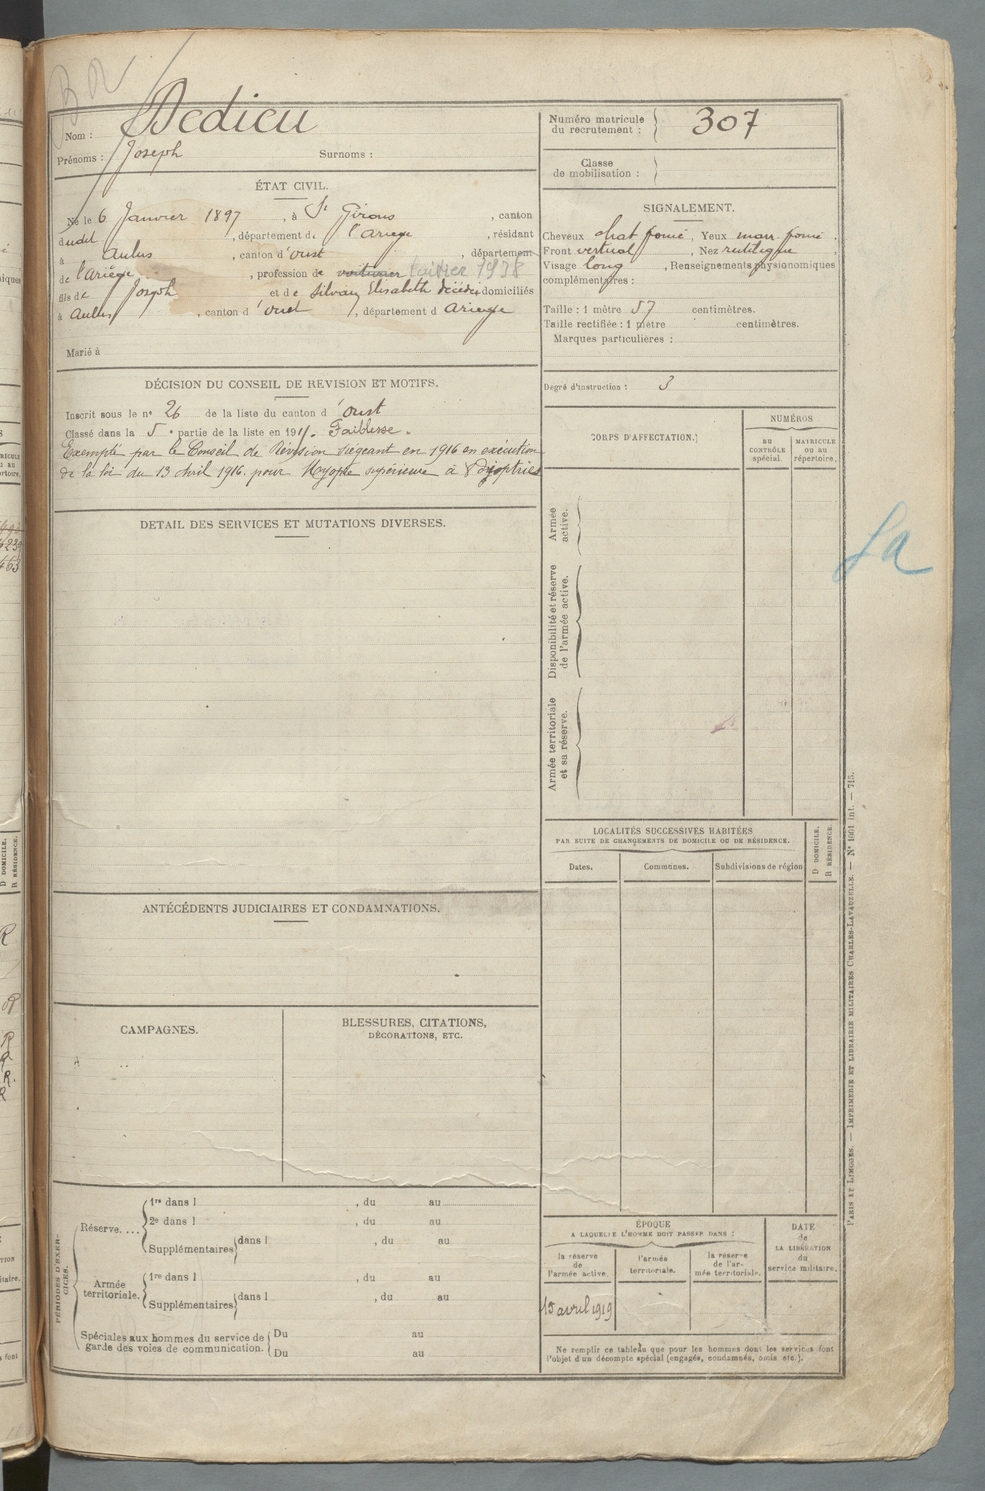 Nom : Dedieu
Prénoms : Joseph Surnoms :
ÉTAT CIVIL.
Né le 6 Janvier 1897, à St Girons, canton
dudit, département de l'Ariege, résidant
à Aulus, canton d'oust, département
de l'Ariège, profession de voiturier laitier 1938
fils de Joseph et de Silvain Elisabeth décédés domiciliés
à Aulus, canton d'oust, département d Ariege
Marié à
DÉCISION DU CONSEIL DE REVISION ET MOTIFS.
Inscrit sous le n° 26 de la liste du canton d'oust
Classé dans la 5e partie de la liste en 191 . Faiblesse.
Exempté par le Conseil de Révision siégeant en 1916 en exécution
de la loi du 13 Avril 1916. pour Myopie supérieure à 8 dyoptries
DETAIL DES SERVICES ET MUTATIONS DIVERSES.
ANTÉCÉDENTS JUDICIAIRES ET CONDAMNATIONS.
CAMPAGNES.
BLESSURES, CITATIONS,
DÉCORATIONS, ETC.
PÉRIODES D'EXERCICES.
Réserve....
1re dans l , du au
2e dans l , du au
Supplémentaires dans l du au
Armée
territoriale.
1re dans l , du au
Supplémentaires dans l , du au
Spéciales aux hommes du service de
garde des voies de communication.
Du au
Du au
Numéro matricule
du recrutement : 307
Classe
de mobilisation :
SIGNALEMENT.
Cheveux chat foncé, Yeux marr. foncé.
Front vertical, Nez rectiligne,
Visage long, Renseignements physionomiques
complémentaires :
Taille : 1 mètre 57 centimètres.
Taille rectifiée : 1 mètre centimètres.
Marques particulières :
Degré d'instruction : 3
CORPS D'AFFECTATION.
NUMÉROS
AU
CONTRÔLE
spécial.
MATRICULE
OU AU
répertoire.
Armée
active.
Disponibilité et réserve
de l'armée active.
Armée territoriale
et sa réserve.
Sa
LOCALITÉS SUCCESSIVES HABITÉES
PAR SUITE DE CHANGEMENTS DE DOMICILE OU DE RÉSIDENCE.
D DOMICILE.
R RÉSIDENCE.
Dates. Communes. Subdivisions de région
ÉPOQUE
A LAQUELLE L'HOMME DOIT PASSER DANS :
la réserve
de
l'armée active.
l'armée
territoriale.
la réserve
de l'ar-
mée territoriale.
DATE
de
LA LIBÉRATION
du
service militaire.
15 avril 1919
Ne remplir ce tableau que pour les hommes dont les services font
l'objet d'un décompte spécial (engagés, condamnés, omis etc.).
PARIS ET LIMOGES. — IMPRIMERIE ET LIBRAIRIE MILITAIRES CHARLES-LAVAUZELLE. — N° 1001 int. — 715.